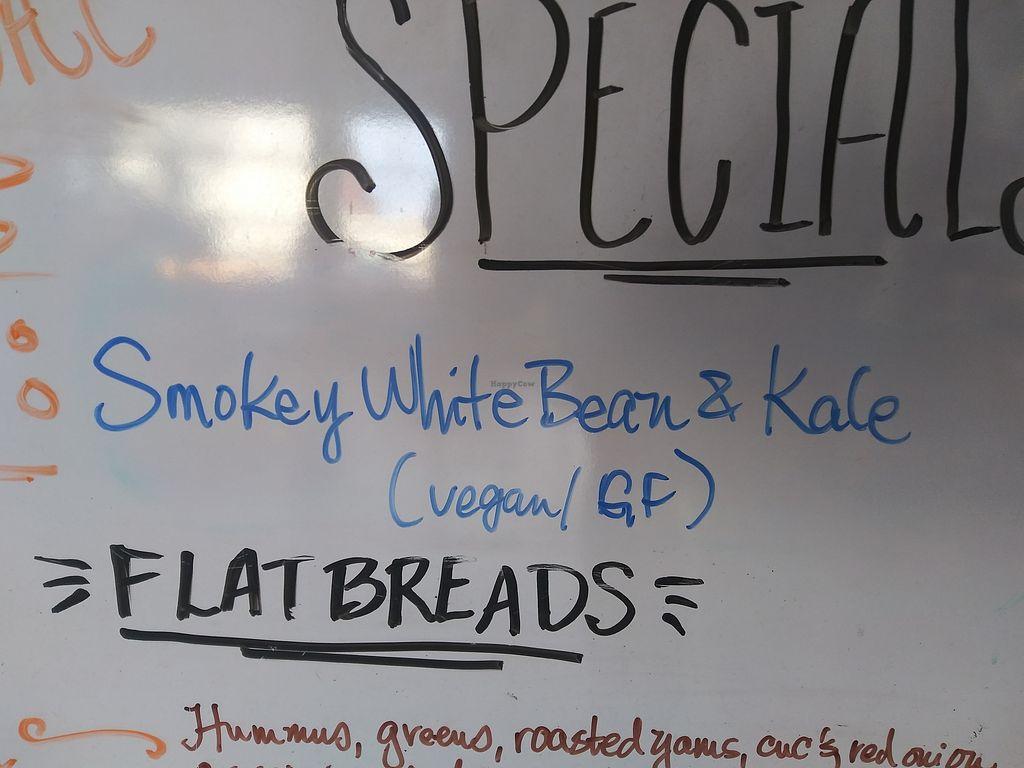 SPECIALS
Smokey White Bean & Kale
HappyCow
(vegan/GF)
FLATBREADS
Hummus, greens, roasted yams, cuc's, red onion,